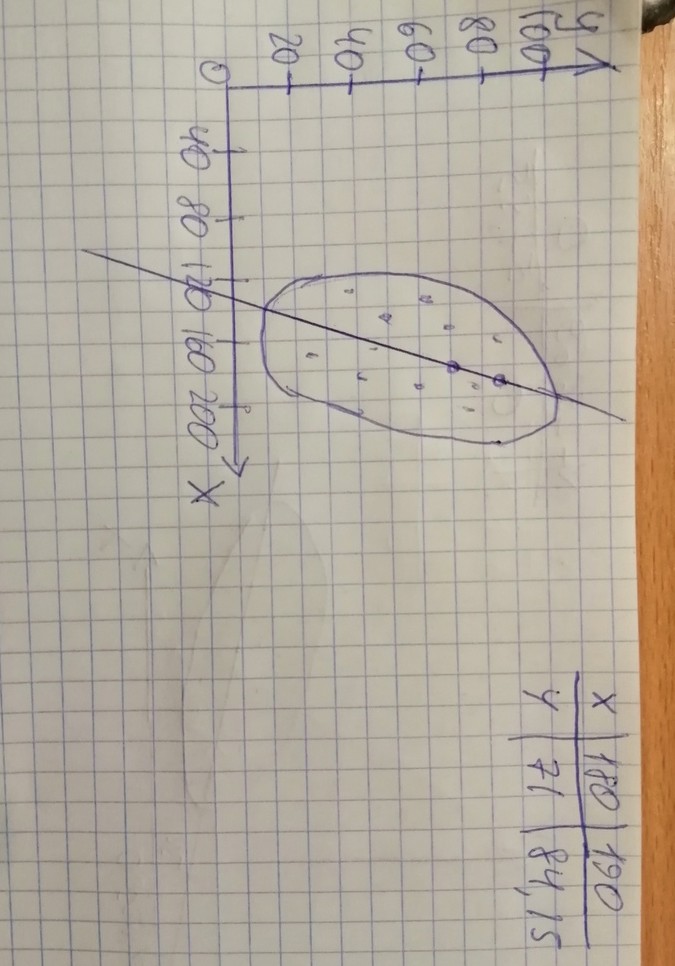 y
100
80
60
40
20
0 40 80 120 160 200 X
X 180 190
y 71 84,15